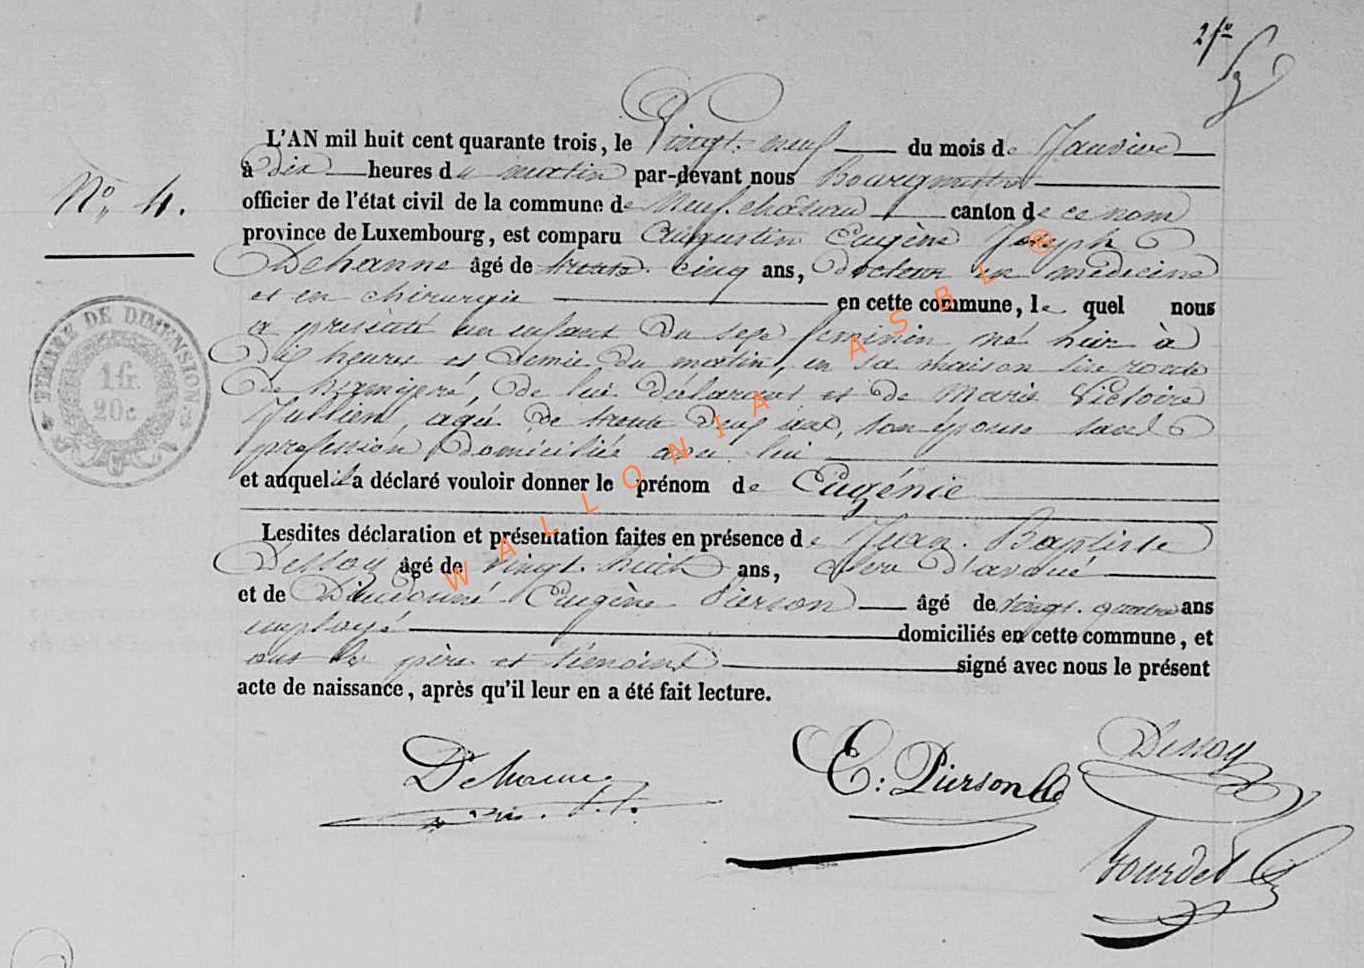 2 fo
L'AN mil huit cent quarante trois, le Vingt-neuf du mois de Janvier
à Dix heures du matin par-devant nous Bourgmestre
N° 4.
officier de l'état civil de la commune de Neufchâteau canton de ce nom
province de Luxembourg, est comparu Augustin Eugène Joseph
Dehanne âgé de trente cinq ans, Docteur en médecine
et en chirurgie en cette commune, lequel nous
a présenté un enfant du sexe féminin, né hier à
Dix heures et demie du matin, en sa maison sise route
de, de lui déclarant et de Marie Victoire
Jullien, agée de trente Deux ans, son épouse sans
profession domiciliée avec lui
et auquel il a déclaré vouloir donner le prénom de Eugénie
Lesdites déclaration et présentation faites en présence de Jean-Baptiste
Dessoy âgé de vingt-huit ans, clerc d'avoué
et de Dieudonné Eugène Pierson âgé de vingt-quatre ans
employé domiciliés en cette commune, et
ont les père et témoins signé avec nous le présent
acte de naissance, après qu'il leur en a été fait lecture.
TIMBRE DE DIMENSION
1 fr.
20 c.
WALLONIA ASBL ®
Dehanne
E: Pierson
Dessoy
Gourdet